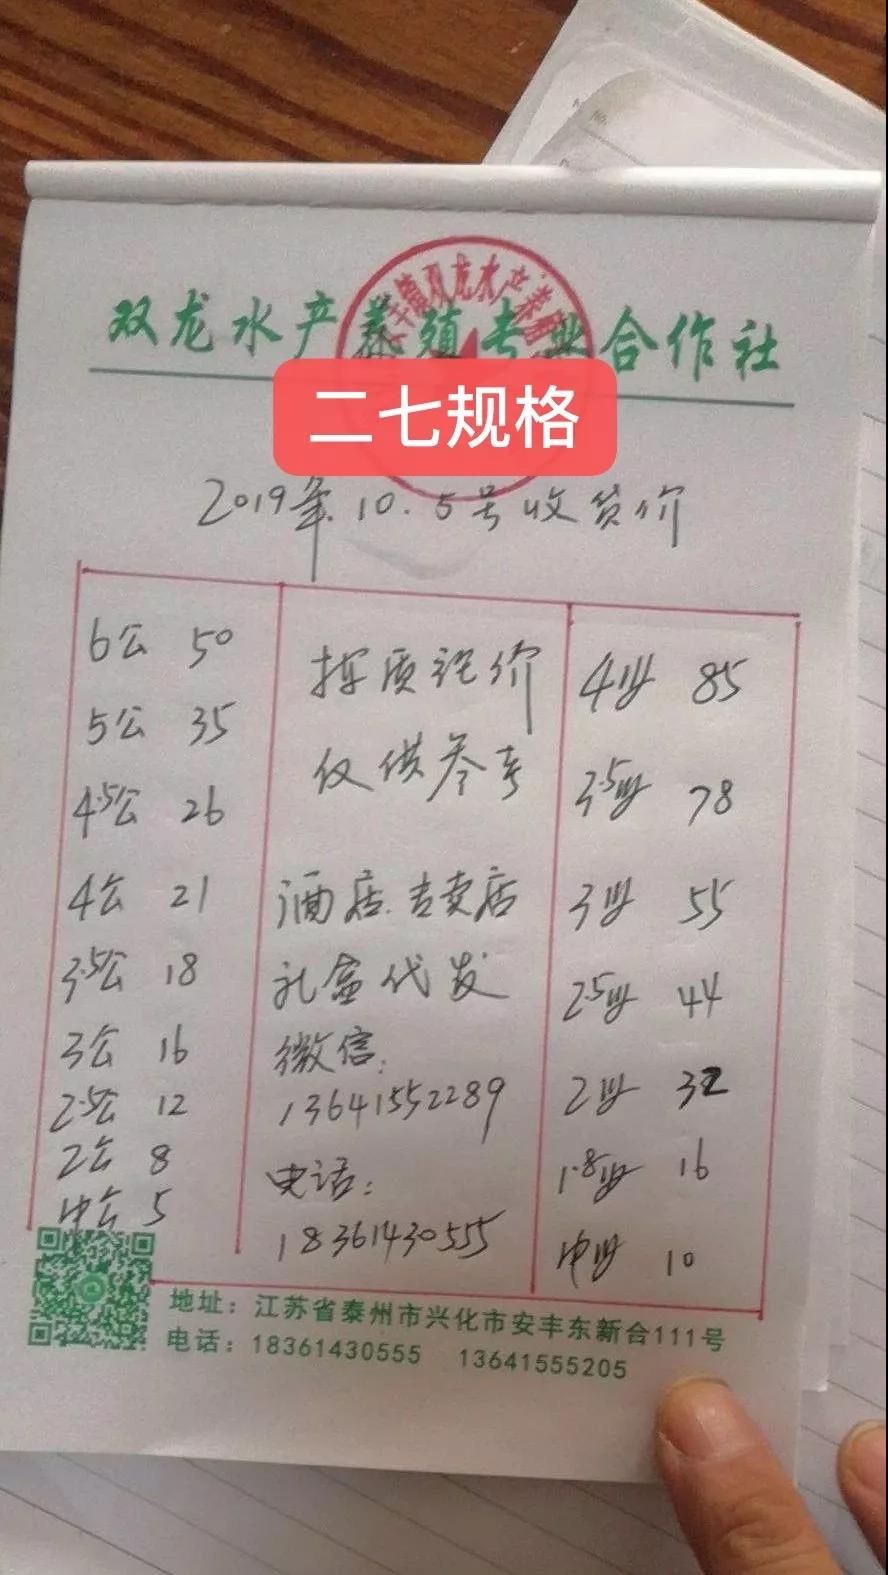 双龙水产养殖专业合作社
二七规格
2019年.10.5号收货价
6公 50
5公 35
4.5公 26
4公 21
3.5公 18
3公 16
2.5公 12
2公 8
中公 5
择质论价
仅供参考
酒店.专卖店
礼盒代发
微信:
13641552289
电话:
18361430555
4母 85
3.5母 78
3母 55
2.5母 44
2母 32
1.8母 16
中母 10
地址：江苏省泰州市兴化市安丰东新合111号
电话：18361430555 13641555205